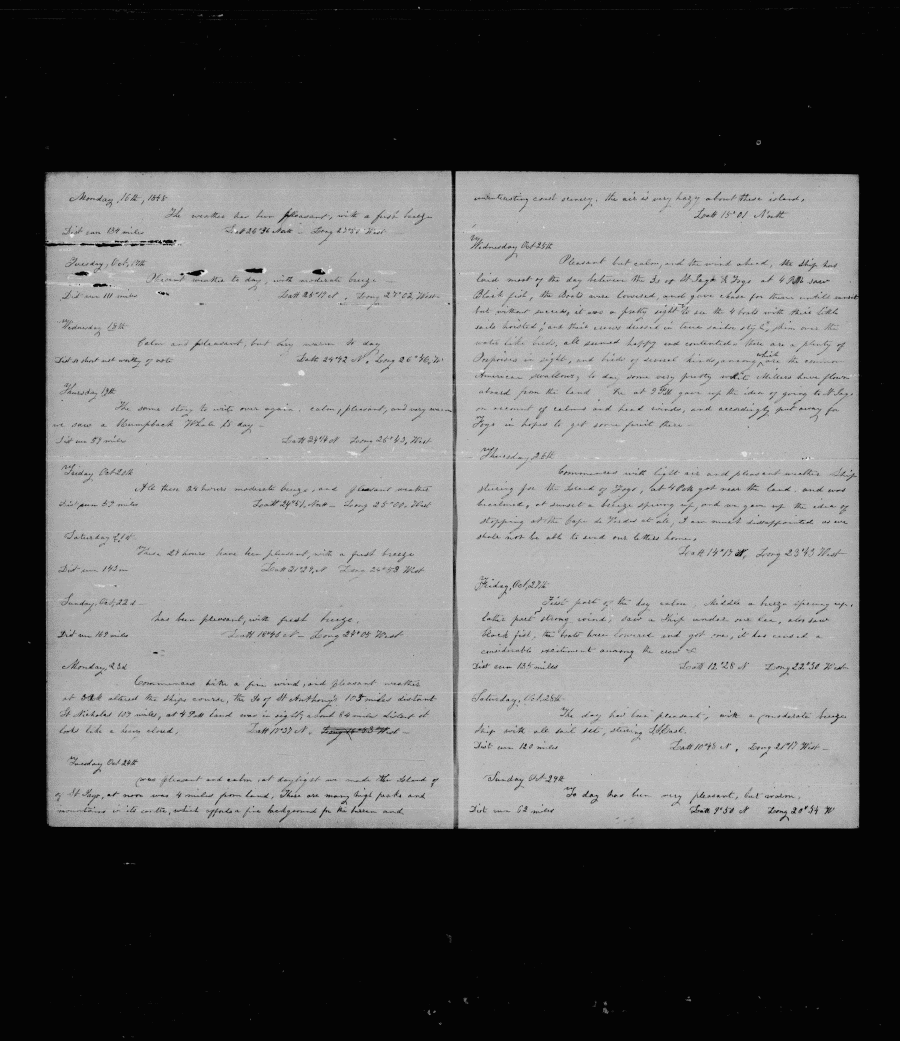 Monday, 16th, 1848
The weather has been pleasant, with a fresh breeze
Dist run 134 miles Latt 26°36 North — Long 27° West
Tuesday, Oct, 17th
Pleasant weather to day, with moderate breeze —
Dist run 111 miles Latt 25°17 N, Long 27°02, West
Wednesday 18th
Calm and pleasant, but very warm to day
Dist so short not worthy of note Latt 24°42 N, Long 26°46, W
Thursday 19th
The same story to write over again. calm, pleasant, and very warm
we saw a Humpback Whale to day —
Dist run 39 miles Latt 24°14 N Long 26°43, West
Friday Oct 20th
All these 24 hours moderate breeze, and pleasant weather
Dist run 59 miles Latt 24°41, North — Long 25°00, West
Saturday 21st
These 24 hours have been pleasant, with a fresh breeze
Dist run 142 m Latt 21°29, N Long 24°58 West
Sunday, Oct, 22d
has been pleasant, with fresh breeze,
Dist run 169 miles Latt 18°45 N — Long 24°05 West
Monday, 23d
Commences with a fine wind, and pleasant weather
at altered the ships course, the Is of St Anthony's 105 miles distant
St Nicholas 107 miles, at 4 P.M land was in sight, about 84 miles distant it
looks like a heavy cloud. Latt 17°27 N,
Tuesday Oct 24th
was pleasant and calm, at daylight we made the Island of
of St Iago, at noon was 4 miles from land, There are many high peaks and
mountains in its centre, which affords a fine background for the barren and
uninteresting coast scenery. the air is very hazy about these islands,
Latt 15°01 North
Wednesday Oct 25th
Pleasant but calm, and the wind ahead, the ship has
laid most of the day between the Is of St. Iago & Fogo at 4 PM saw
Black fish, the Boats were lowered, and gave chase for them untill sunset
but without success, it was a pretty sight to see the 4 boats with their little
sails hoisted, and their crews dressed in true sailor style, skim over the
water like birds, all seemed happy and contented. there are a plenty of
Porpoises in sight, and birds of several kinds, among which are the common
American swallows, to day some very pretty white Millers have flown
aboard from the land. We at 3 PM gave up the idea of going to St Iago
on account of calms and head winds, and accordingly put away for
Fogo in hopes to get some fruit there —
Thursday 26th
Commences with light air and pleasant weather Ship
steering for the Island of Fogo, at 4 Oclk got near the land and was
becalmed, at sunset a breeze sprung up, and we gave up the idea of
stopping at the Cape de Verdes at all, I am much disappointed as we
shall not be able to send our letters home,
Latt 14°17 N, Long 23°43 West
Friday, Oct, 27th
First part of the day calm, Middle a breeze sprung up,
latter part strong wind, saw a Ship under our lee, also saw
black fish, the boats have lowered and got one, it has caused a
considerable excitement among the crew &
Dist run 135 miles Latt 12°28 N Long 22°30 West
Saturday, Oct, 28th
The day has been pleasant, with a moderate breeze
Ship with all sail set, steering
Dist run 120 miles Latt 10°45 N, Long 21°17 West —
Sunday Oct 29th
To day has been very pleasant, but warm.
Dist run 62 miles Latt 9°50 N Long 20°54 W